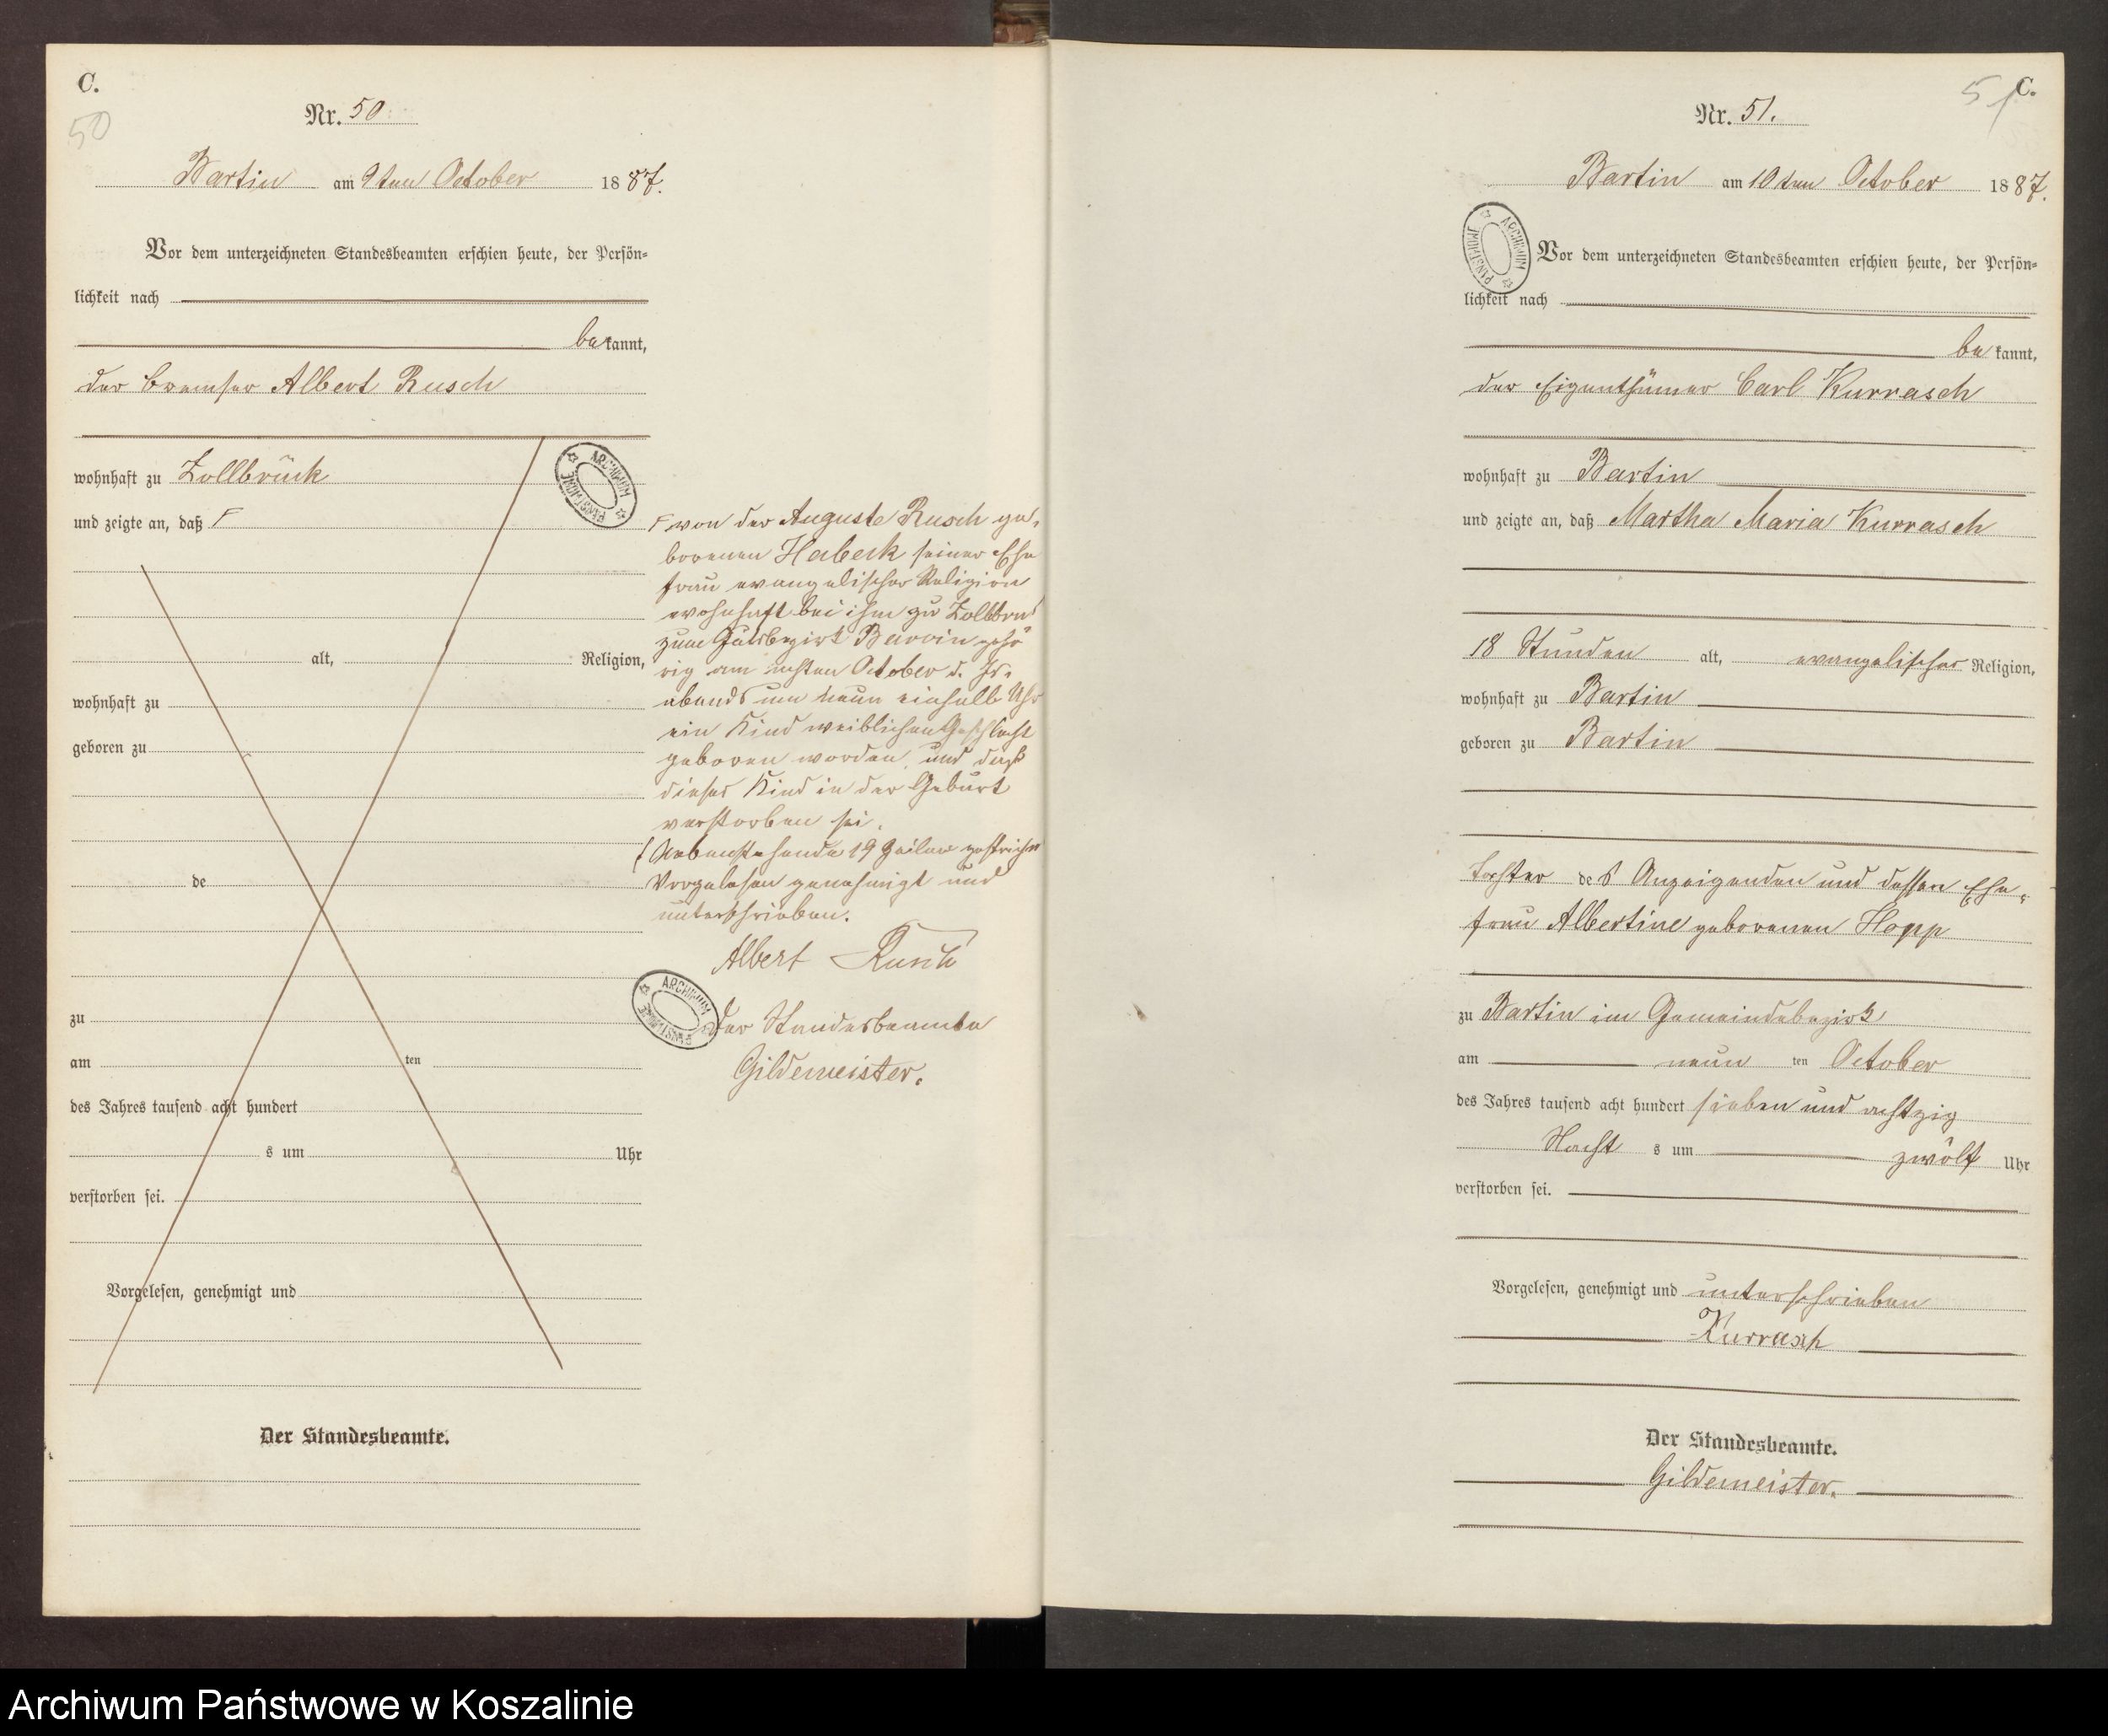 C.
50
Nr. 50
Bartin am 9ten October 1887.
Vor dem unterzeichneten Standesbeamten erschien heute, der Persön-
lichkeit nach
bekannt,
der Bremser Albert Rusch
wohnhaft zu Zollbrück
und zeigte an, daß
alt, Religion,
wohnhaft zu
geboren zu
de
zu
am ten
des Jahres tausend acht hundert
s um Uhr
verstorben sei.
Vorgelesen, genehmigt und
Der Standesbeamte.
von der Auguste Rusch ge-
borenen Habeck seiner Ehe
frau evangelischer Religion
wohnhaft bei ihm zu Zollbrück
zum Gutsbezirk Barvin gehö
rig am achten October d. Js.
abends um neun einhalb Uhr
ein Kind weiblichen Geschlecht
geboren worden, und daß
dieses Kind in der Geburt
verstorben sei.
Nebenstehende 19 Zeilen gestrichen
Vorgelesen genehmigt und
unterschrieben.
Albert Rusch
Der Standesbeamte
Gildemeister.
ARCHIWUM PAŃSTWOWE
ARCHIWUM PAŃSTWOWE
51
C.
Nr. 51.
Bartin am 10ten October 1887.
ARCHIWUM PAŃSTWOWE
Vor dem unterzeichneten Standesbeamten erschien heute, der Persön-
lichkeit nach
bekannt,
der Eigenthümer Carl Kurrasch
wohnhaft zu Bartin
und zeigte an, daß Martha Maria Kurrasch
18 Stunden alt, evangelischer Religion,
wohnhaft zu Bartin
geboren zu Bartin
Tochter des Anzeigenden und dessen Ehe-
frau Albertine geborenen Hopp
zu Bartin im Gemeindebezirk
am neun ten October
des Jahres tausend acht hundert sieben und achtzig
Nacht s um zwölf Uhr
verstorben sei.
Vorgelesen, genehmigt und unterschrieben
Kurrasch
Der Standesbeamte.
Gildemeister.
Archiwum Państwowe w Koszalinie